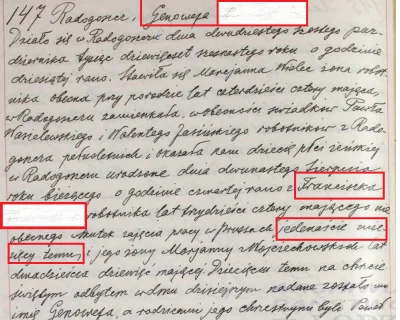 147 Radogoszcz, Genowefa
Działo się w Radogoszczu dnia dwudziestego szóstego paź-
dziernika tysiąc dziewięćset szesnastego roku o godzinie
dziesiątej rano. Stawiła się Marjanna żona robot-
nika obecna przy porodzie lat czterdzieści cztery mająca,
w Radogoszczu zamieszkała, w obecności świadków Pawła
Wasielewskiego i Walentego robotników z Rado-
goszcza pełnoletnich i okazała nam dziecię płci żeńskiej
w Radogoszczu urodzone dnia dwunastego Sierpnia
roku bieżącego o godzinie czwartej rano z Franciszka
robotnika lat trzydzieści cztery mającego nie
obecnego skutek zajęcia pracy w Prusach jedenaście mie-
sięcy temu, i jego żony Marjanny Wojciechowskich lat
dwadzieścia dziewięć mającej. Dziecięciu temu na chrzcie
świętym odbytem w dniu dzisiejszym nadane zostało
imię Genowefa, a rodzicami jego chrzestnymi byli Paweł